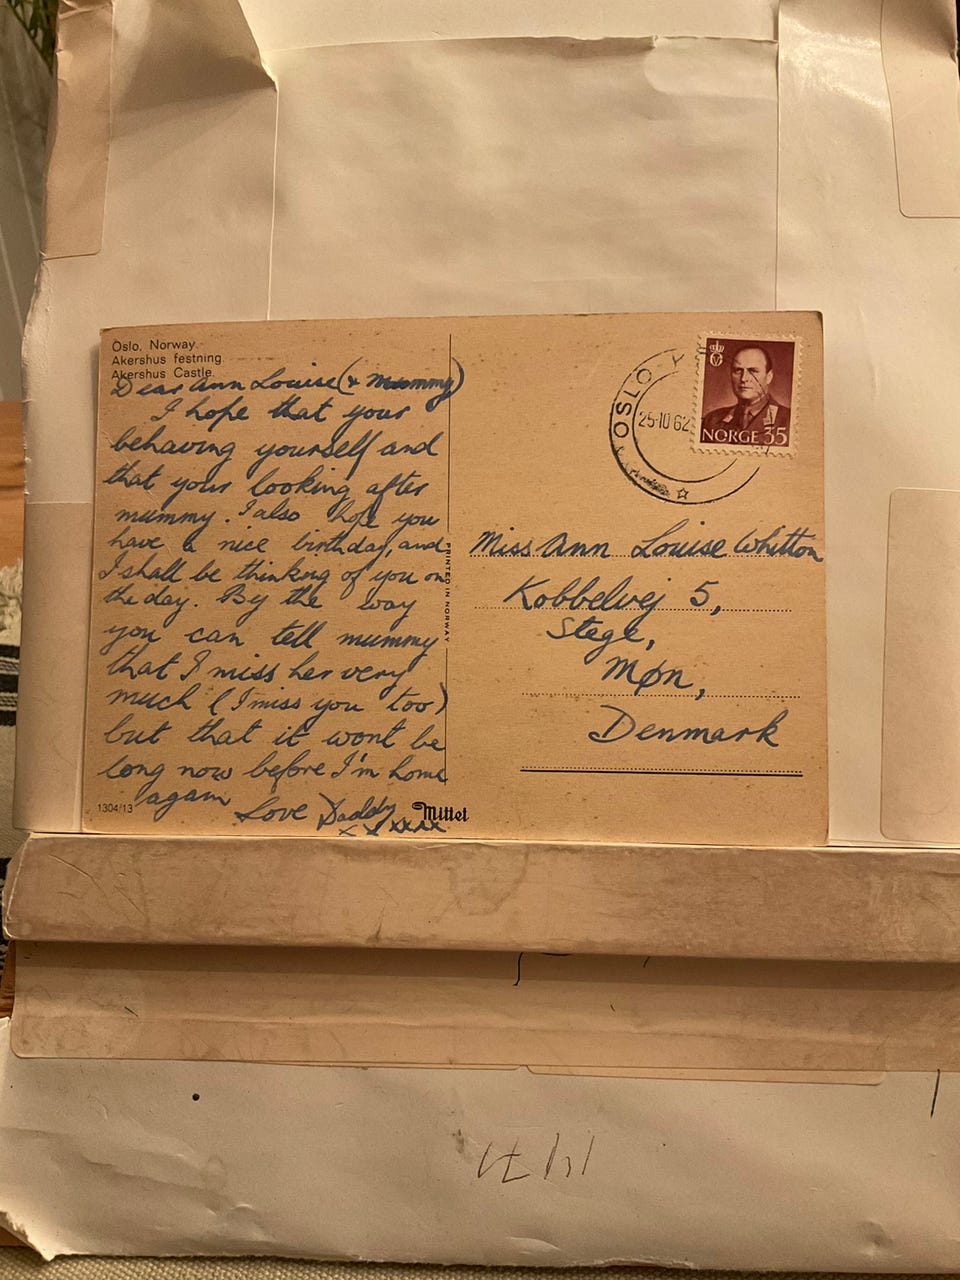 Oslo, Norway.
Akershus festning.
Akershus Castle.
Dear Ann Louise (+ Mummy)
I hope that your
behaving yourself and
that your looking after
mummy. I also hope you
have a nice birthday, and
I shall be thinking of you on
the day. By the way
you can tell mummy
that I miss her very
much (I miss you too)
but that it wont be
long now before I'm home
again
Love Daddy
x x xxx
1304/13
Mittet
PRINTED IN NORWAY
OSLO
25-10 62
NORGE 35
Miss Ann Louise Whitton
Kobbelvej 5,
Stege,
Møn,
Denmark